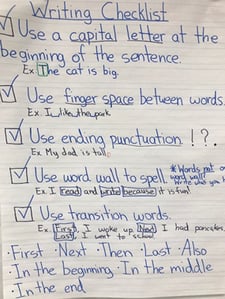 Writing Checklist
Use a capital letter at the
beginning of the sentence.
Ex. The cat is big.
Use finger space between words.
Ex. I like the park
Use ending punctuation !?.
Ex. My dad is tall.
Use word wall to spell.
*Words not
word wall?
Write what you
Ex. I read and write because it is fun!
Use transition words.
Ex. First, I woke up. Next I had pancakes.
Last, I went to school
·First ·Next ·Then ·Last ·Also
·In the beginning ·In the middle
·In the end